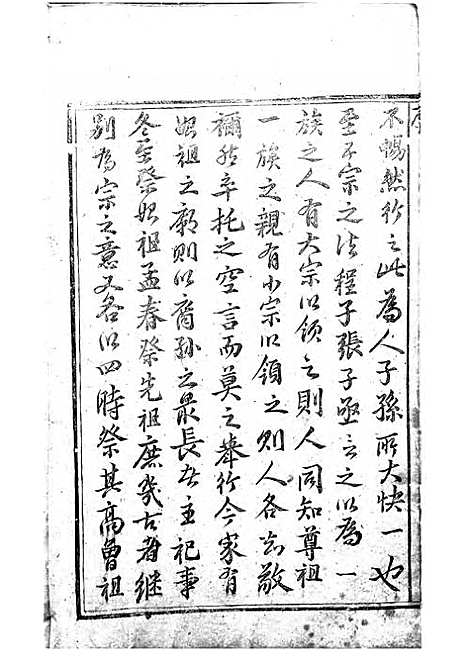 不暢然行之此為人子孫所大快一也
至於宗之法程子張子亟言之以為一
族之人有大宗以領之則人同知尊祖
一族之親有小宗以領之則人各知敬
禰然卒托之空言而莫之舉行今家有
始祖之廟則以裔孫之最長者主祀事
冬至祭始祖孟春祭先祖庶幾古者继
别為宗之意又各以四時祭其高曾祖